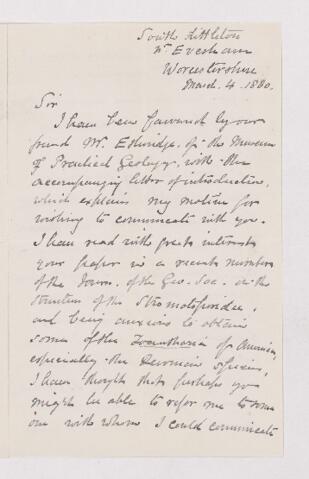 South Littleton
Nr. Evesham
Worcestershire
March. 4. 1880.
Sir
I have been favoured by our
friend Mr. Etheridge, of the Museum
of Practical Geology, with the
accompanying letter of introduction,
which explains my motive for
wishing to communicate with you.
I have read with great interest
your paper in a recent number
of the Journ. of the Geo. Soc. on the
structure of the Stromatoporidae,
and being anxious to obtain
some of the Zoantharia of America,
especially the Devonian species,
I have thought that perhaps you
might be able to refer me to some
one with whom I could communicate